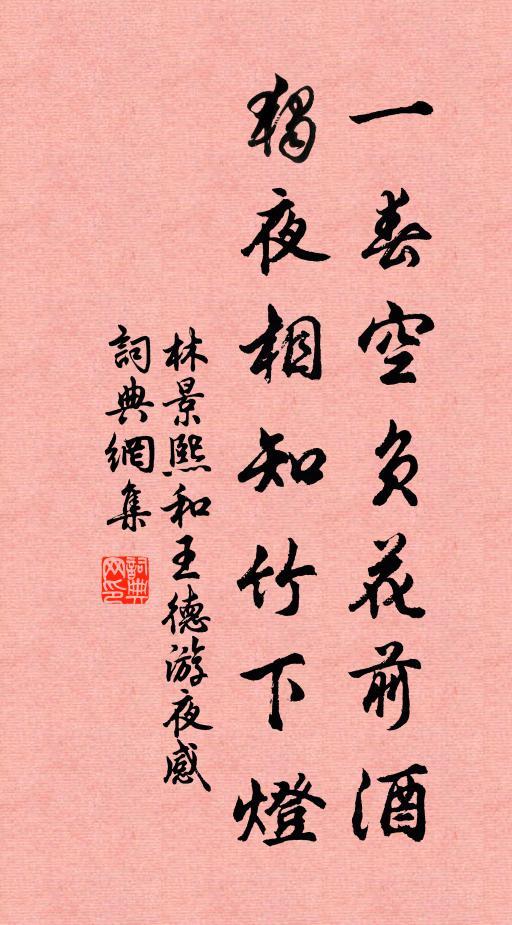 一春空負花前酒
獨夜相知竹下燈
林景熙和王德游夜感
詞典網集
詞典网印